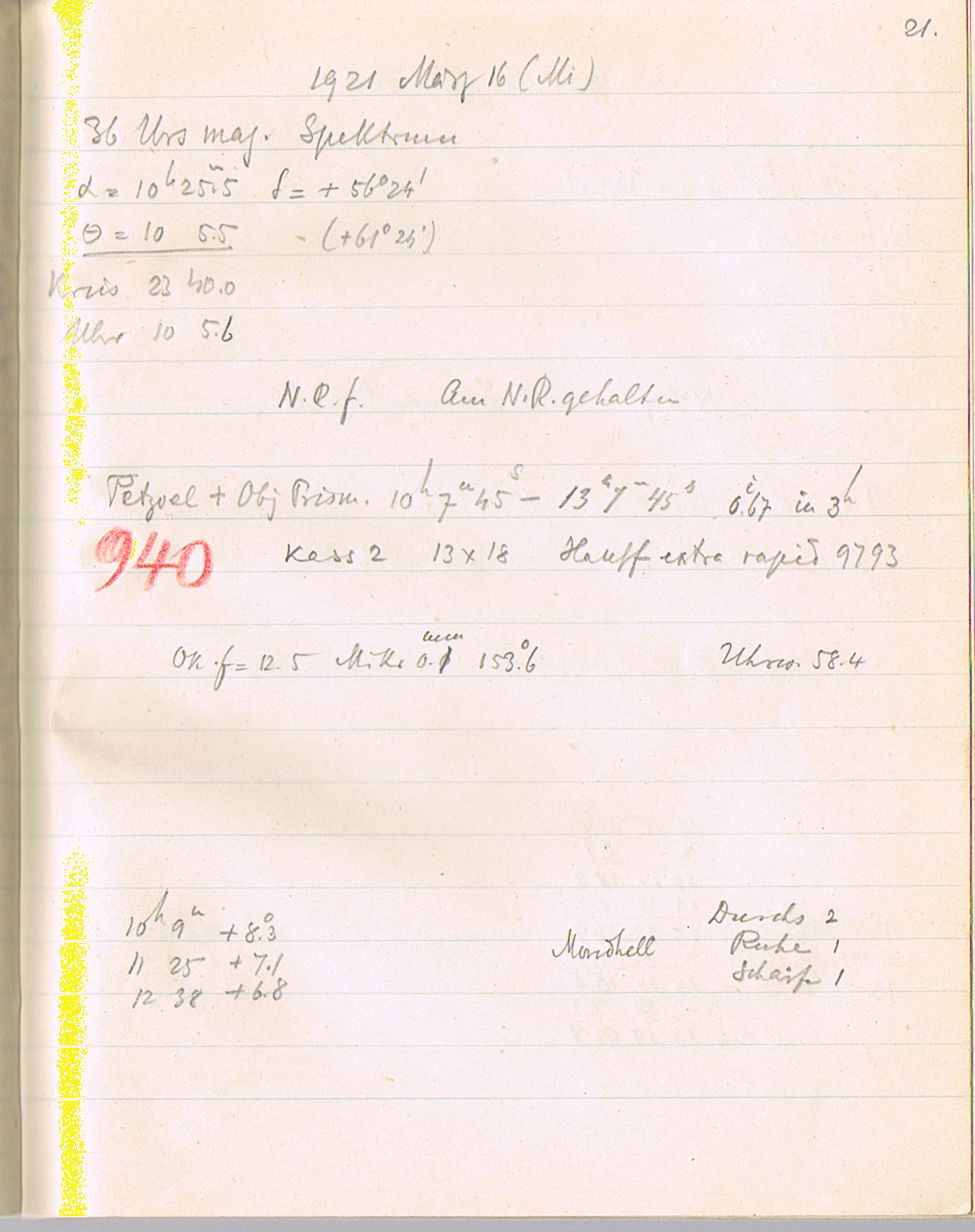 21.
1921 März 16 (Mi)
36 Urs maj. Spektrum
α = 10ʰ25ᵐ.5 δ = + 56°24'
Θ = 10 5.5 (+61°24')
Kreis 23 40.0
Uhr 10 5.6
N.R.f. Am N.R. gehalten
Petzval + Obj Prism. 10ʰ 7ᵐ 45ˢ – 13ʰ 7ᵐ 45ˢ 0.67 in 3ʰ
940 Kass 2 13 x 18 Hauff extra rapid 9793
Ok. f = 12.5 Mikr 0.1 153°.6 Uhrw. 58.4
10ʰ 9ᵐ +8°.3 Durchs 2
11 25 +7.1 Mondhell Ruhe 1
12 38 +6.8 Schärfe 1